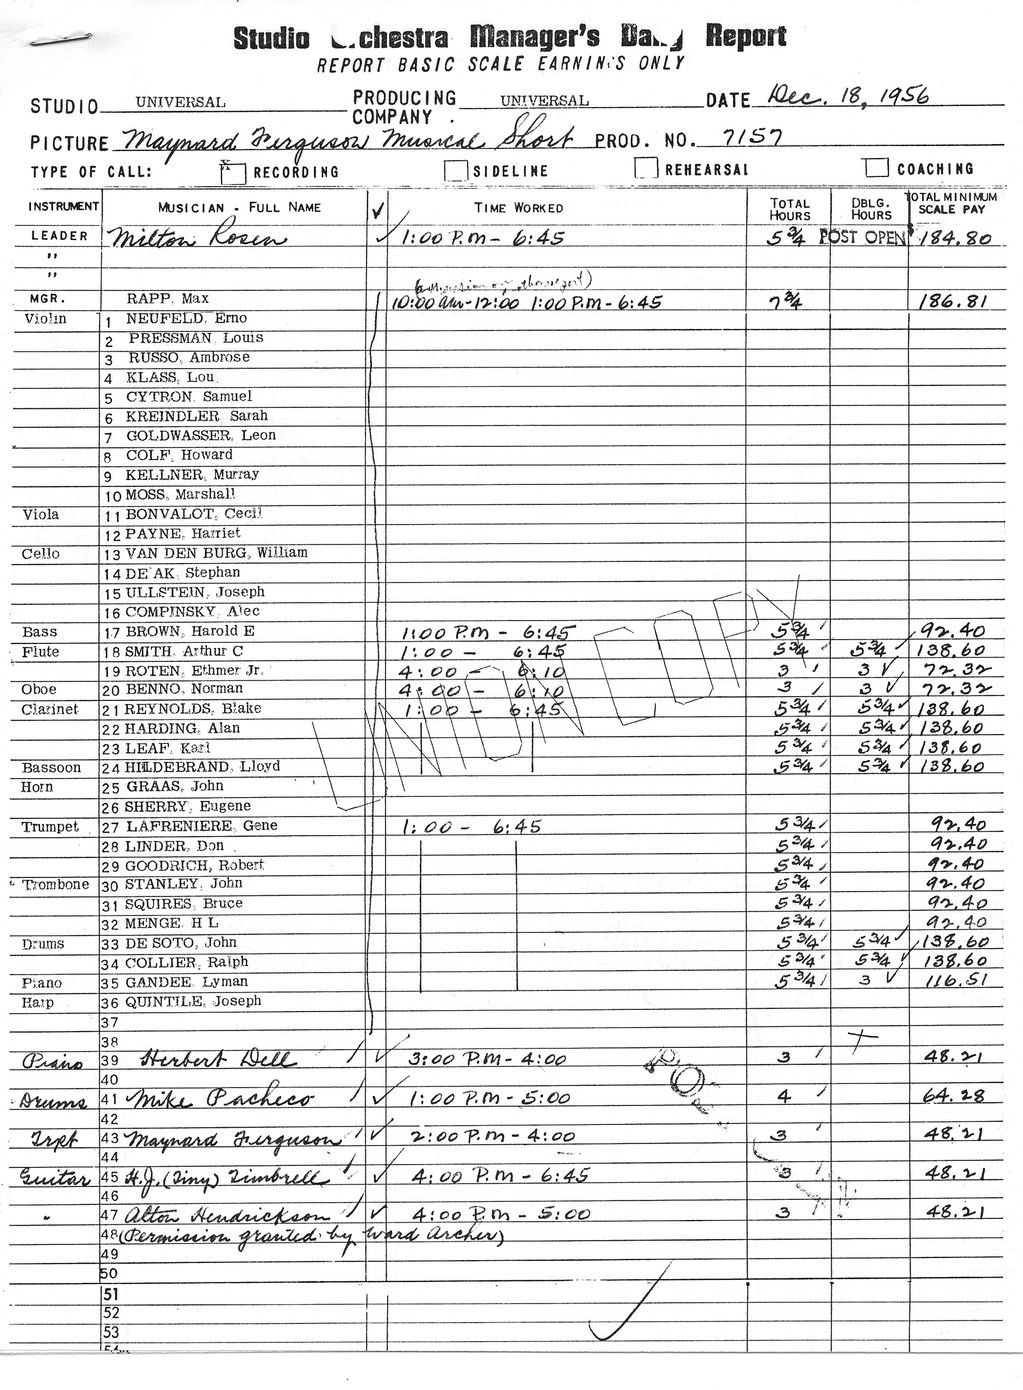 Studio Orchestra Manager's Daily Report
REPORT BASIC SCALE EARNINGS ONLY
STUDIO UNIVERSAL PRODUCING COMPANY . UNIVERSAL DATE Dec. 18, 1956
PICTURE Maynard Ferguson Musical Short PROD. NO. 7157
TYPE OF CALL: x RECORDING SIDELINE REHEARSAL COACHING
INSTRUMENT MUSICIAN - FULL NAME ✓ TIME WORKED TOTAL HOURS DBLG. HOURS TOTAL MINIMUM SCALE PAY
LEADER Milton Rosen ✓ 1:00 P.M - 6:45 5 3/4 POST OPEN $184.80
"
"
MGR. RAPP, Max 10:00 am-12:00 1:00 P.M - 6:45 7 3/4 186.81
Violin 1 NEUFELD, Erno
2 PRESSMAN, Louis
3 RUSSO, Ambrose
4 KLASS, Lou
5 CYTRON, Samuel
6 KREINDLER Sarah
7 GOLDWASSER, Leon
8 COLF, Howard
9 KELLNER, Murray
10 MOSS, Marshall
Viola 11 BONVALOT, Cecil
12 PAYNE, Harriet
Cello 13 VAN DEN BURG, William
14 DE'AK, Stephan
15 ULLSTEIN, Joseph
16 COMPINSKY, Alec
Bass 17 BROWN, Harold E 1:00 P.M - 6:45 5 3/4 92.40
Flute 18 SMITH, Arthur C 1:00 - 6:45 5 3/4 5 3/4 138.60
19 ROTEN, Ethmer Jr. 4:00 - 6:10 3 3 ✓ 72.32
Oboe 20 BENNO, Norman 4:00 - 6:10 3 3 ✓ 72.32
Clarinet 21 REYNOLDS, Blake 1:00 - 6:45 5 3/4 5 3/4 138.60
22 HARDING, Alan 5 3/4 5 3/4 138.60
23 LEAF, Karl 5 3/4 5 3/4 138.60
Bassoon 24 HILDEBRAND, Lloyd 5 3/4 5 3/4 138.60
Horn 25 GRAAS, John
26 SHERRY, Eugene
Trumpet 27 LAFRENIERE, Gene 1:00 - 6:45 5 3/4 92.40
28 LINDER, Don 5 3/4 92.40
29 GOODRICH, Robert 5 3/4 92.40
Trombone 30 STANLEY, John 5 3/4 92.40
31 SQUIRES, Bruce 5 3/4 92.40
32 MENGE, H L 5 3/4 92.40
Drums 33 DE SOTO, John 5 3/4 5 3/4 138.60
34 COLLIER, Ralph 5 3/4 5 3/4 138.60
Piano 35 GANDEE, Lyman 5 3/4 3 ✓ 116.51
Harp 36 QUINTILE, Joseph
37
38
Piano 39 Herbert Dell ✓ 3:00 P.M - 4:00 3 48.21
40
Drums 41 Mike Pacheco ✓ 1:00 P.M - 5:00 4 64.28
42
Trpt 43 Maynard Ferguson ✓ 2:00 P.M - 4:00 3 48.21
44
Guitar 45 H.J. (Tiny) Timbrell ✓ 4:00 P.M - 6:45 3 48.21
46
" 47 Alton Hendrickson ✓ 4:00 P.M - 5:00 3 48.21
48 (Permission granted by Ward Archer)
49
50
51
52
53
UNION COPY